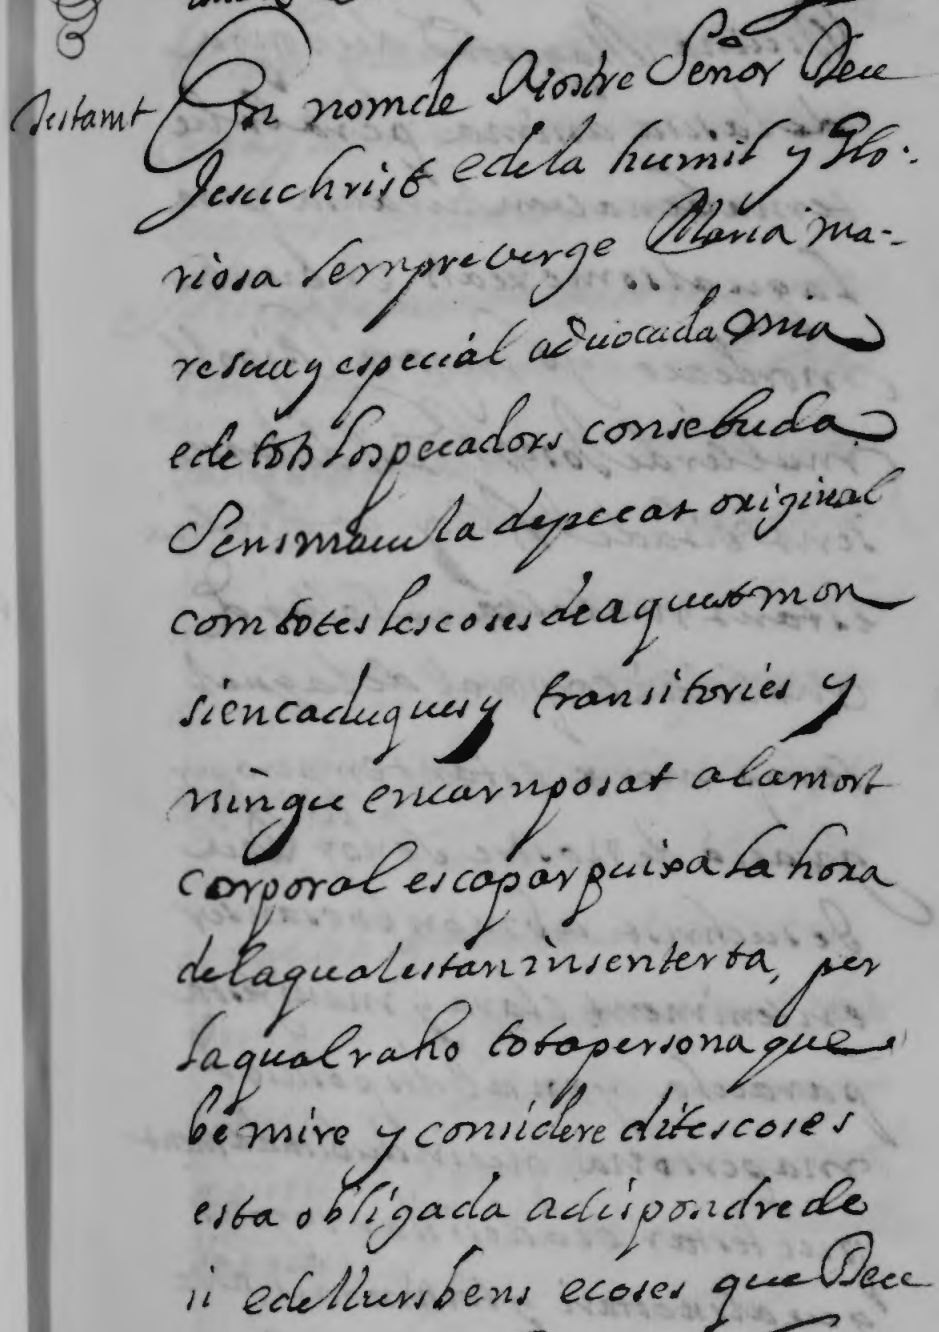 Testamt En nom de Nostre Señor Deu
Jesuchrist e de la humil y Glo-
riosa sempre verge Maria ma-
re sua y especial advocada mia
e de tots los pecadors consebuda
sens macula de pecat original
com totes les coses de aquest mon
sien caduques y transitories y
ningu en carn posat a la mort
corporal escapar puixa la hora
de la qual es tan insenterta, per
la qual raho tota persona que
be mire y considere dites coses
esta obligada a dispondre de
si e de llurs bens e coses que Deu